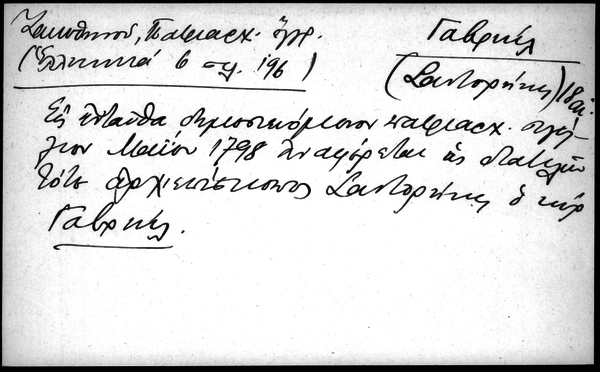 Ζακυθηνού, Πατριαρχ. ἔγγρ.
(Ἑλληνικά 6 σελ. 196)
Γαβριήλ
(Σαντορήνης) 18 αἰ.
Εἰς ἐνταῦθα δημοσιευόμενον πατριαρχ. σιγίλ-
λιον Μαΐου 1798 ἀναφέρεται ὡς
τότε ἀρχιεπίσκοπος Σαντορήνης ὁ κύρ
Γαβριήλ.